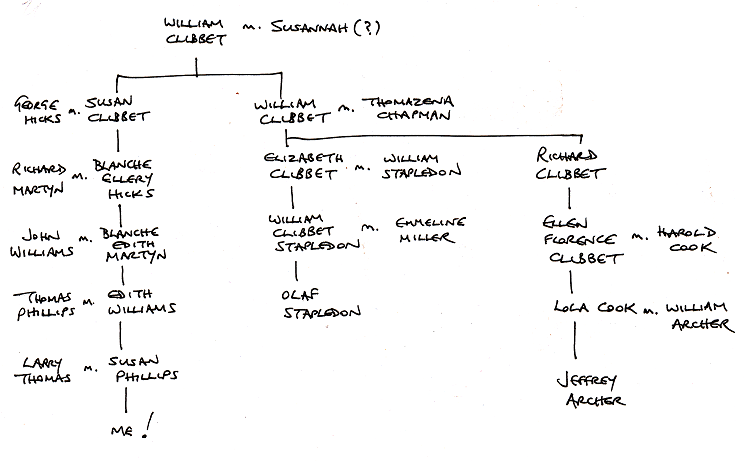 WILLIAM CLIBBET m. SUSANNAH (?)
GEORGE HICKS m. SUSAN CLIBBET
WILLIAM CLIBBET m. THOMAZENA CHAPMAN
RICHARD MARTYN m. BLANCHE ELLERY HICKS
ELIZABETH CLIBBET m. WILLIAM STAPLEDON
RICHARD CLIBBET
JOHN WILLIAMS m. BLANCHE EDITH MARTYN
WILLIAM CLIBBET STAPLEDON m. EMMELINE MILLER
ELLEN FLORENCE CLIBBET m. HAROLD COOK
THOMAS PHILLIPS m. EDITH WILLIAMS
OLAF STAPLEDON
LOLA COOK m. WILLIAM ARCHER
LARRY THOMAS m. SUSAN PHILLIPS
JEFFREY ARCHER
ME!